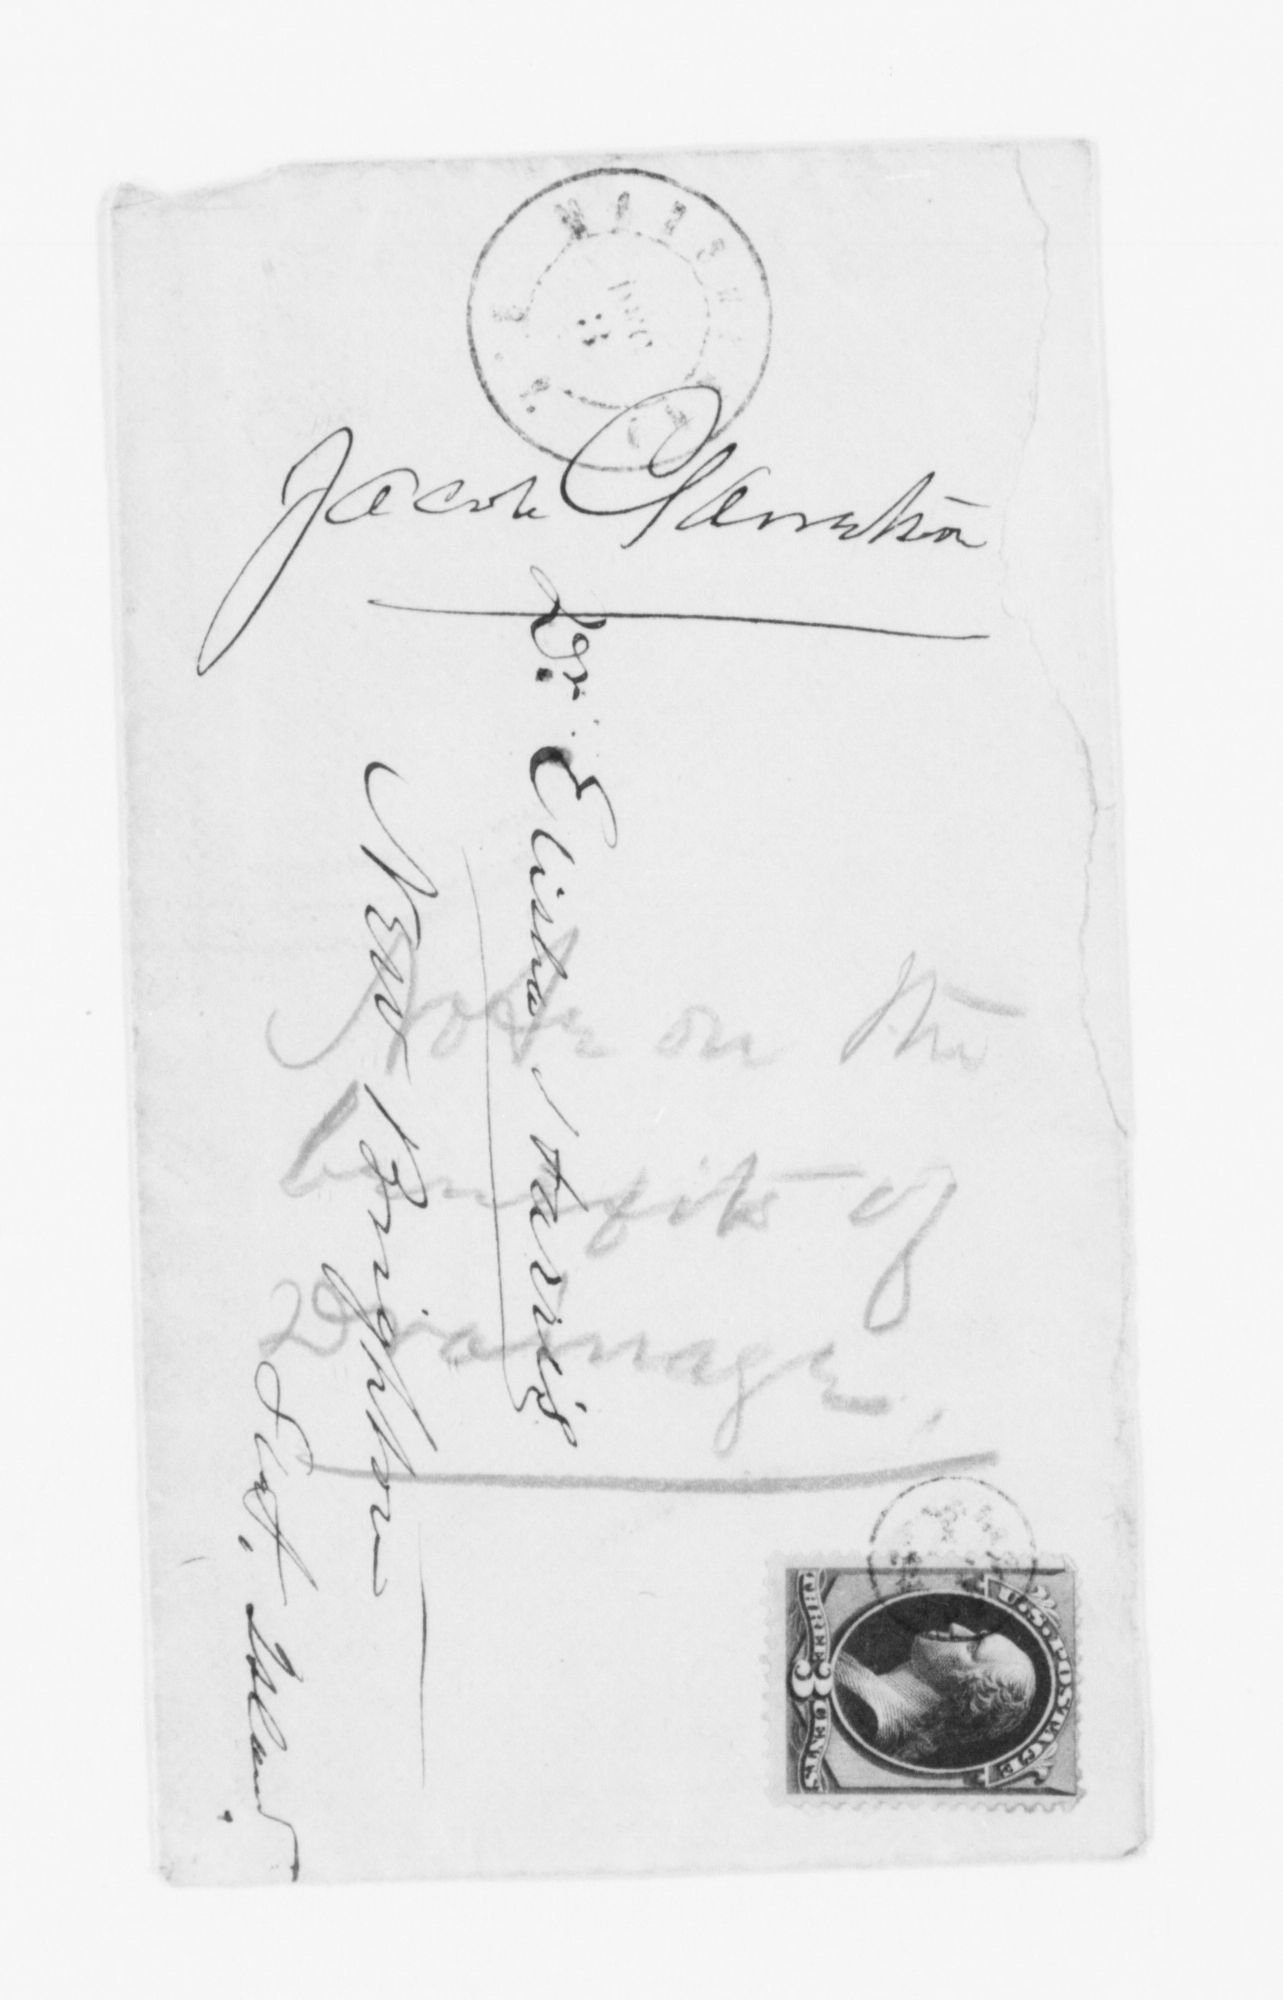 Jacob Garretson
Dr. Elisha Harris
New Brighton
Stat. Island
Note on the
benefits of
Drainage.
DEC
11
N. Y.
U.S. POSTAGE
THREE 3 CENTS